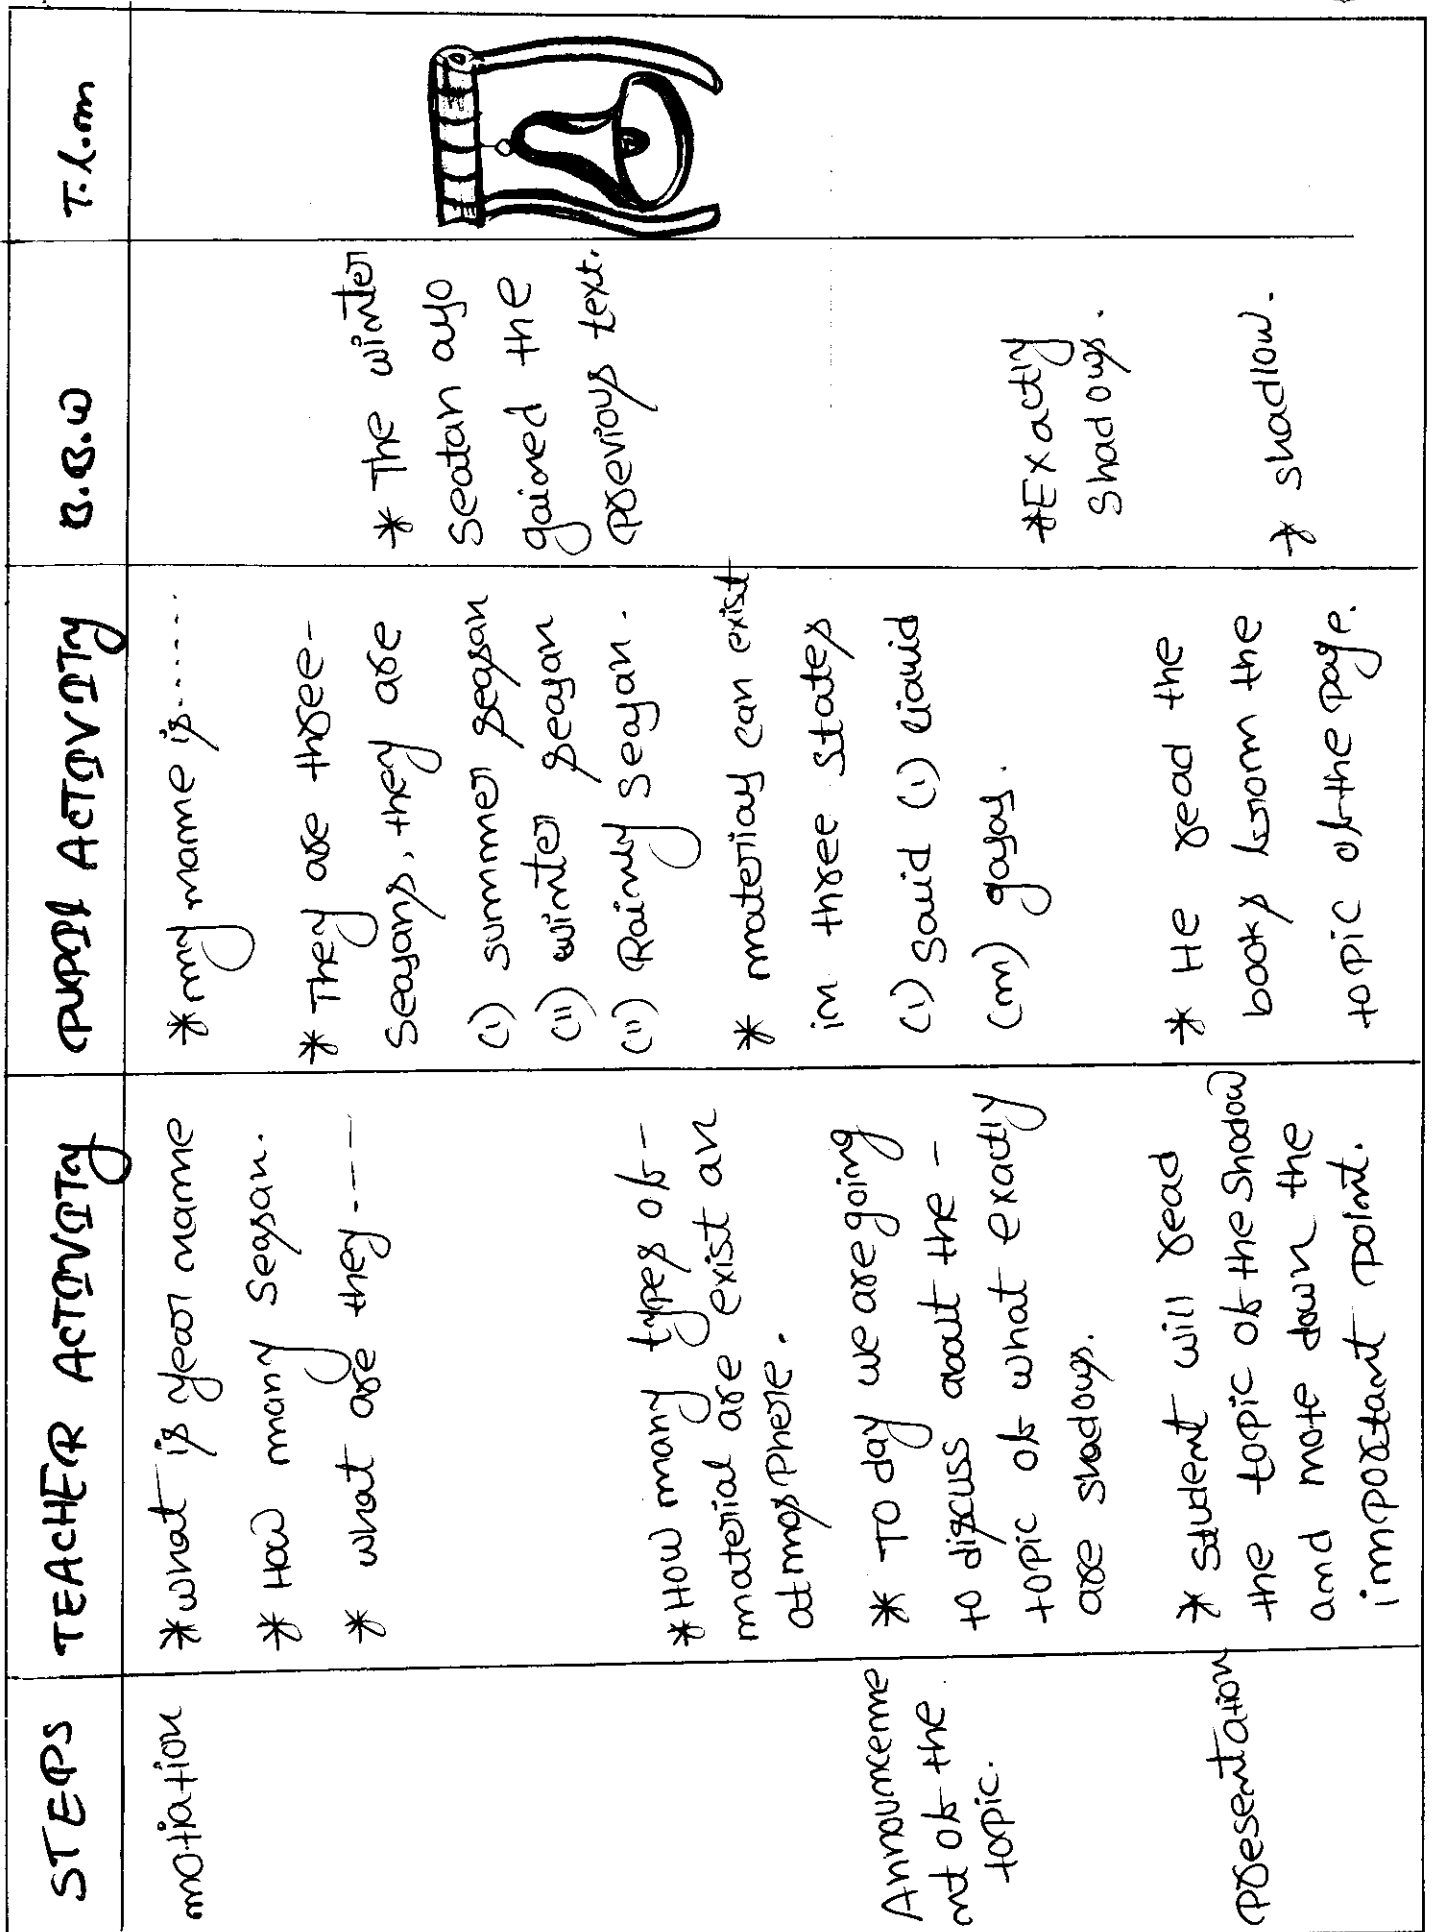 STEPS
TEACHER ACTIVITY
PUPIL ACTIVITY
B.B.W
T.L.m
motiation
*what is year name
* How many Seasan.
* what are they----
*How many types of-
material are exist an
atmosphere.
*my name is......
* They are three-
Seasans, they are
(i) summer seasan
(ii) winter seasan
(ii) Rainly Seasan.
* materias can exist
in three states
(i) Sauid (i) liauid
(m) gasas.
* The winter
seatan ayo
gained the
previous text.
Announceme
nt of the
topic.
* To day we are going
to discuss about the -
topic of what exactly
are shadows.
*Exactly
Shadows.
presentation
* Student will read
the topic of the Shadow
and note down the
important point.
* He read the
books from the
topic of the page.
* shadlow.